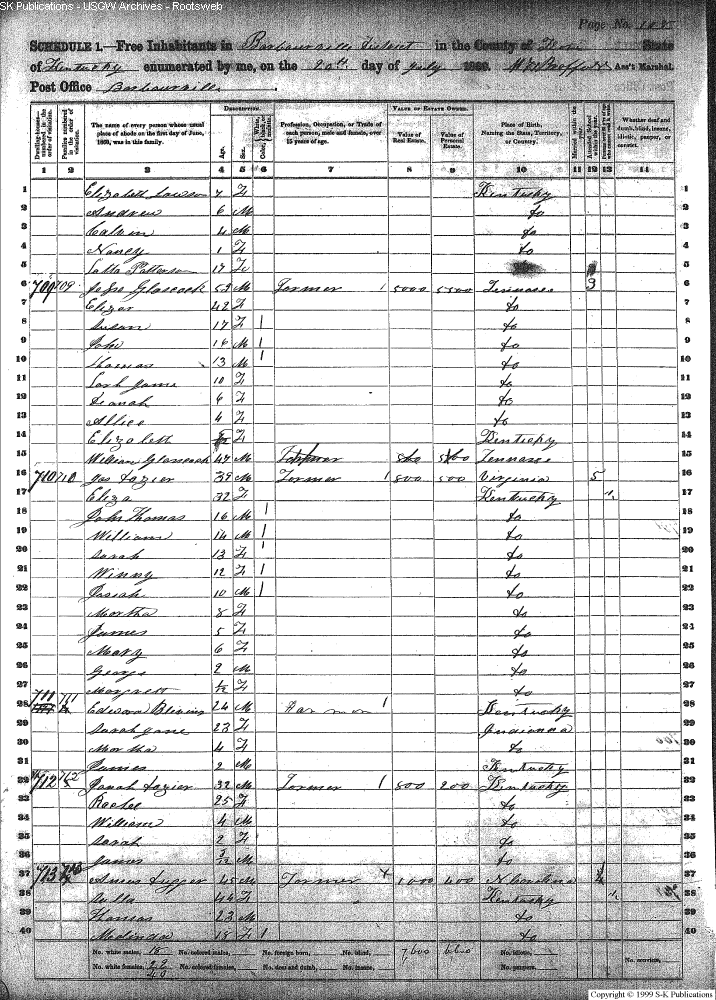 SK Publications - USGW Archives - Rootsweb
Page No.
SCHEDULE 1.—Free Inhabitants in Barbourville District in the County of Knox State
of Kentucky enumerated by me, on the 20th day of July 1860. Ass't Marshal.
Post Office Barbourville
DESCRIPTION. VALUE OF ESTATE OWNED.
Dwelling-houses—numbered in the order of visitation. Families numbered in the order of visitation. The name of every person whose usual place of abode on the first day of June, 1860, was in this family. Age. Sex. Color, White, black, or mulatto. Profession, Occupation, or Trade of each person, male and female, over 15 years of age. Value of Real Estate. Value of Personal Estate. Place of Birth, Naming the State, Territory, or Country. Married within the year. Attended School within the year. Whether deaf and dumb, blind, insane, idiotic, pauper, or convict.
1 2 3 4 5 6 7 8 9 10 11 12 13 14
1 Elizabeth Lawson 7 F Kentucky 1
2 Andrew 6 M do 2
3 Calvin 4 M do 3
4 Nancy 1 F do 4
5 Patterson 17 F 5
6 709 709 John Glascock 53 M Farmer 1 5000 5500 Tennessee 3 6
7 Elizar 42 F do 7
8 Susan 17 F 1 do 8
9 John 16 M 1 do 9
10 Thomas 13 M 1 do 10
11 Sarh Jame 10 F do 11
12 F do 12
13 Allice 4 F do 13
14 Elizabeth F Kentucky 14
15 William Glascock 47 M Farmer Tennessee 15
16 710 710 Jas Lazier 39 M Farmer 1 800 500 Virginia 5 16
17 Eliza 32 F Kentucky 17
18 John Thomas 16 M 1 do 18
19 William 14 M 1 do 19
20 Sarah 13 F 1 do 20
21 Winny 12 F 1 do 21
22 Josiah 10 M 1 do 22
23 Martha 8 F do 23
24 James 5 F do 24
25 Mary 6 F do 25
26 George 2 M do 26
27 Margrett F do 27
28 711 711 Edward Blivins 24 M 1 Kentucky 28
29 Sarah Jane 23 F Indianna 29
30 Martha 4 F do 30
31 James 2 M Kentucky 31
32 712 712 Lazier 32 M Farmer 1 800 200 Kentucky 32
33 Rachel 25 F do 33
34 William 4 M do 34
35 Sarah 2 F do 35
36 James M do 36
37 713 713 Tugger 45 M Farmer 1000 400 N Carolina 37
38 44 F Kentucky 38
39 Thomas 23 M do 39
40 Malinda 18 F 1 do 40
No. white males, 18 No. colored males, No. foreign born, No. blind, 7600 6600 No. idiotic, No. convicts,
No. white females, 22 No. colored females, No. deaf and dumb, No. insane, No. paupers,
40
Copyright © 1999 S-K Publications